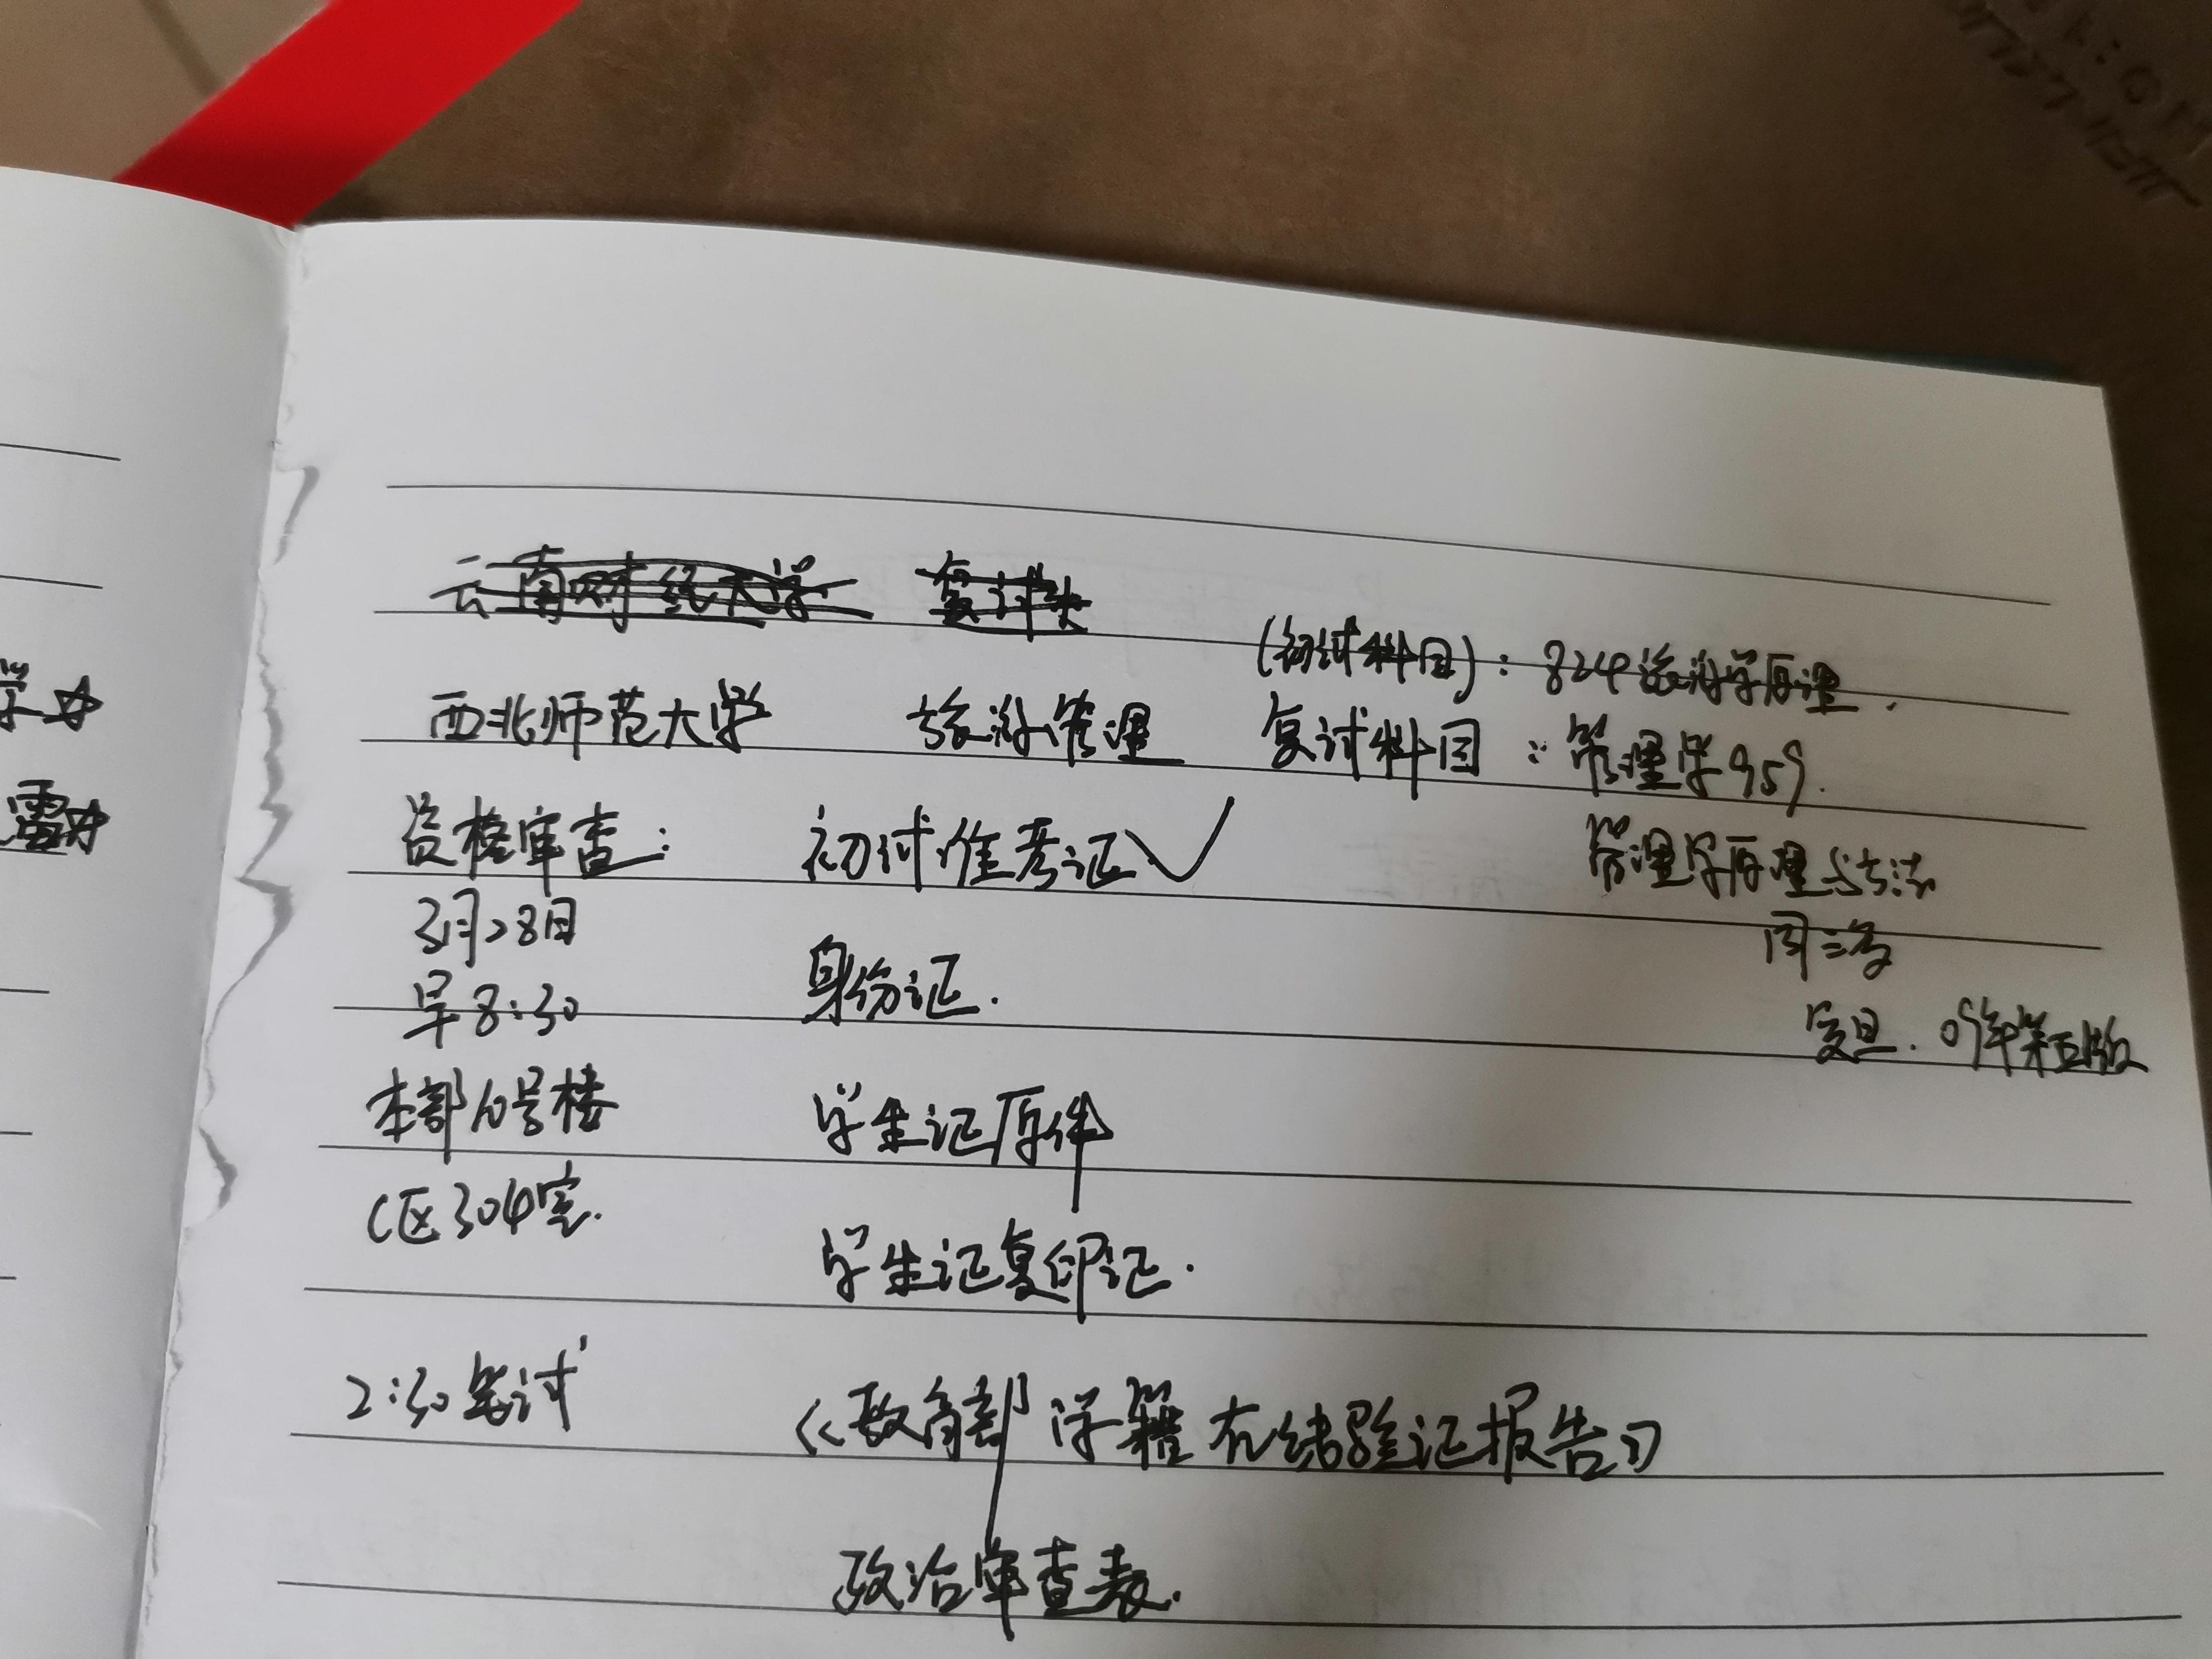 云南财经大学
(初试科目)：824旅游学原理.
西北师范大学 旅游管理 复试科目：管理学959.
资格审查： 初试准考证✓
管理学原理与方法
3月28日
周三多
早8:30 身份证.
复旦. 09年第五版
本部10号楼 学生证原件
C区304室.
学生证复印证.
2:30笔试
《教育部学籍在线验证报告》
政治审查表.